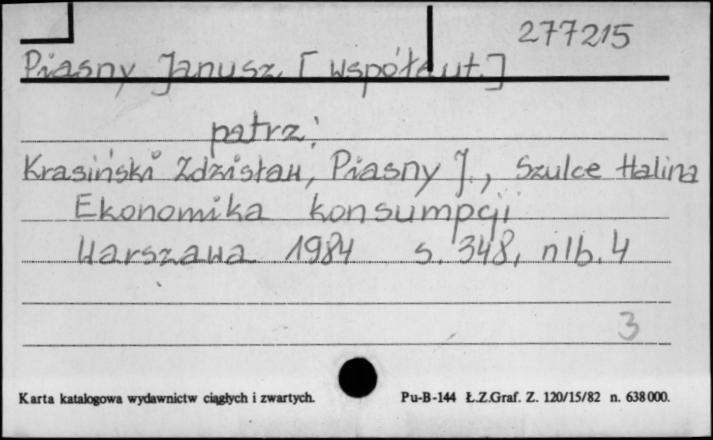 277215
Piasny Janusz [współaut.]
patrz:
Krasiński Zdzisław, Piasny J., Szulce Halina
Ekonomika konsumpcji
Warszawa 1984 s. 348, nlb. 4
3
Karta katalogowa wydawnictw ciągłych i zwartych. Pu-B-144 Ł.Z.Graf. Z. 120/15/82 n. 638000.